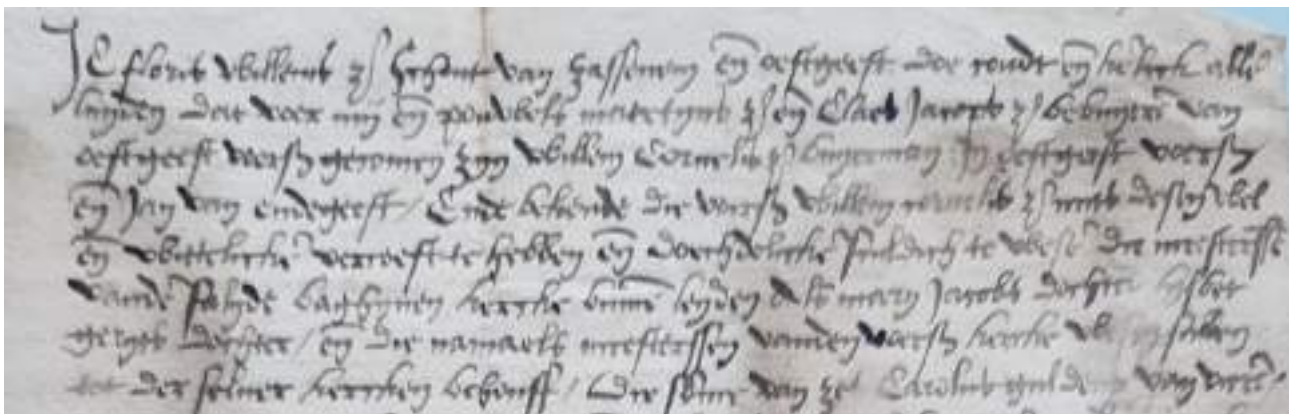 IC floris willems z schout van sassenem en oestgeest doe condt en kenlick allen
luyden dat voer mij en pouwels maertyns z en Claes Jacops z gebueren van
oestgeest voersz gecomen zyn willem Cornelis z buerman In oestgeest voersz
en Jan van endegeest / Ende bekende die voersz willem cornelis z mits desen wel
en wittelicke vercoeft te hebben en deuchdelicke sculdich te wesen die meesterssen
vande falyde baghynen kercke binnen leyden als mary Jacobs dochter
dochter / en die namaels meesterssen vanden voersz kercke wesen sullen
tot der selver kercken behouff / die somme van Carolus guldens van